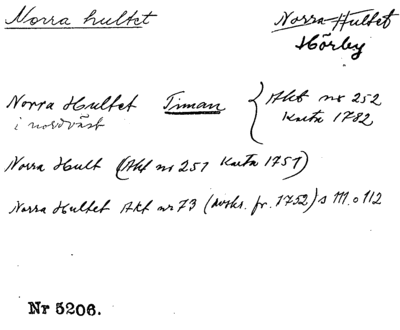 Norra hultet
Norra Hultet
Hörby
Norra Hultet Timan { Akt nr 252
i nordväst Karta 1782
Norra Hult (Akt nr 251 Karta 1751)
Norra Hultet Akt nr 73 (avskr. fr. 1752) s 111 o 112
Nr 5206.